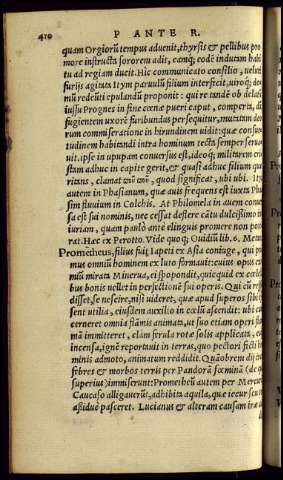 410 P ANTE R.
quam Orgiorũ tempus advenit, thyrsis & pellibus pro
more instructa sororem adit, eamq; eodẽ indutam habi
tu ad regiam ducit. Hic communicato consilio, velut
furijs agitatæ Itym parvulũ filium interficiũt, viroq; do
mũ redeũti epulandũ proponũt: qui re tandẽ ob delatũ
iussu Prognes in fine cœnæ pueri caput, comperta, dũ
fugientem uxorẽ furibundus persequitur, mutatam deo
rum commiseratione in hirundinem vidit: quæ consue
tudinem habitandi intra hominum tecta semper serva
vit. ipse in upupam conversus est, ideoq; militarem cri
stam adhuc in capite gerit, & quasi adhuc filium quæ
ritans, clamat
quod significat, ubi ubi. Itys
autem in Phasianum, quæ avis frequens est iuxta Pha
sim fluvium in Colchis. At Philomela in avem conver
sa est sui nominis, nec cessat deflere cãtu dulcissimo in
iuriam, quam paulò antè elinguis promere non pote
rat. Hæc ex Perotto. Vide quoq; Ovidiũ lib. 6. Meta
Prometheus, filius fuit Iapeti ex Asia coniuge, qui pri
mus omniũ hominem ex luto formavit: cuius opus cum
mũ mirata Minerva, ei spopondit, quicquid ex cœlesti
bus bonis vellet in perfectionẽ sui operis. Qui cũ respõ
disset, se nescire, nisi videret, quæ apud superos sibi es
sent utilia, eiusdem auxilio in cœlũ ascendit: ubi cum
cerneret omnia flãmis animata, ut suo etiam operi flam
mã immitteret, clàm ferula rotæ solis applicata, eaq;
incensa, ignẽ reportavit in terras, quo pectori fictili ho
minis admoto, animatum reddidit. Quãobrem dij irati
febres & morbos terris per Pandorã fœminã (de qua
superius) immiserunt: Prometheũ autem per Mercuriũ
Caucaso alligaverũt, adhibita aquila, quæ iecur suum
assiduò pasceret. Lucianus & alteram causam iræ de